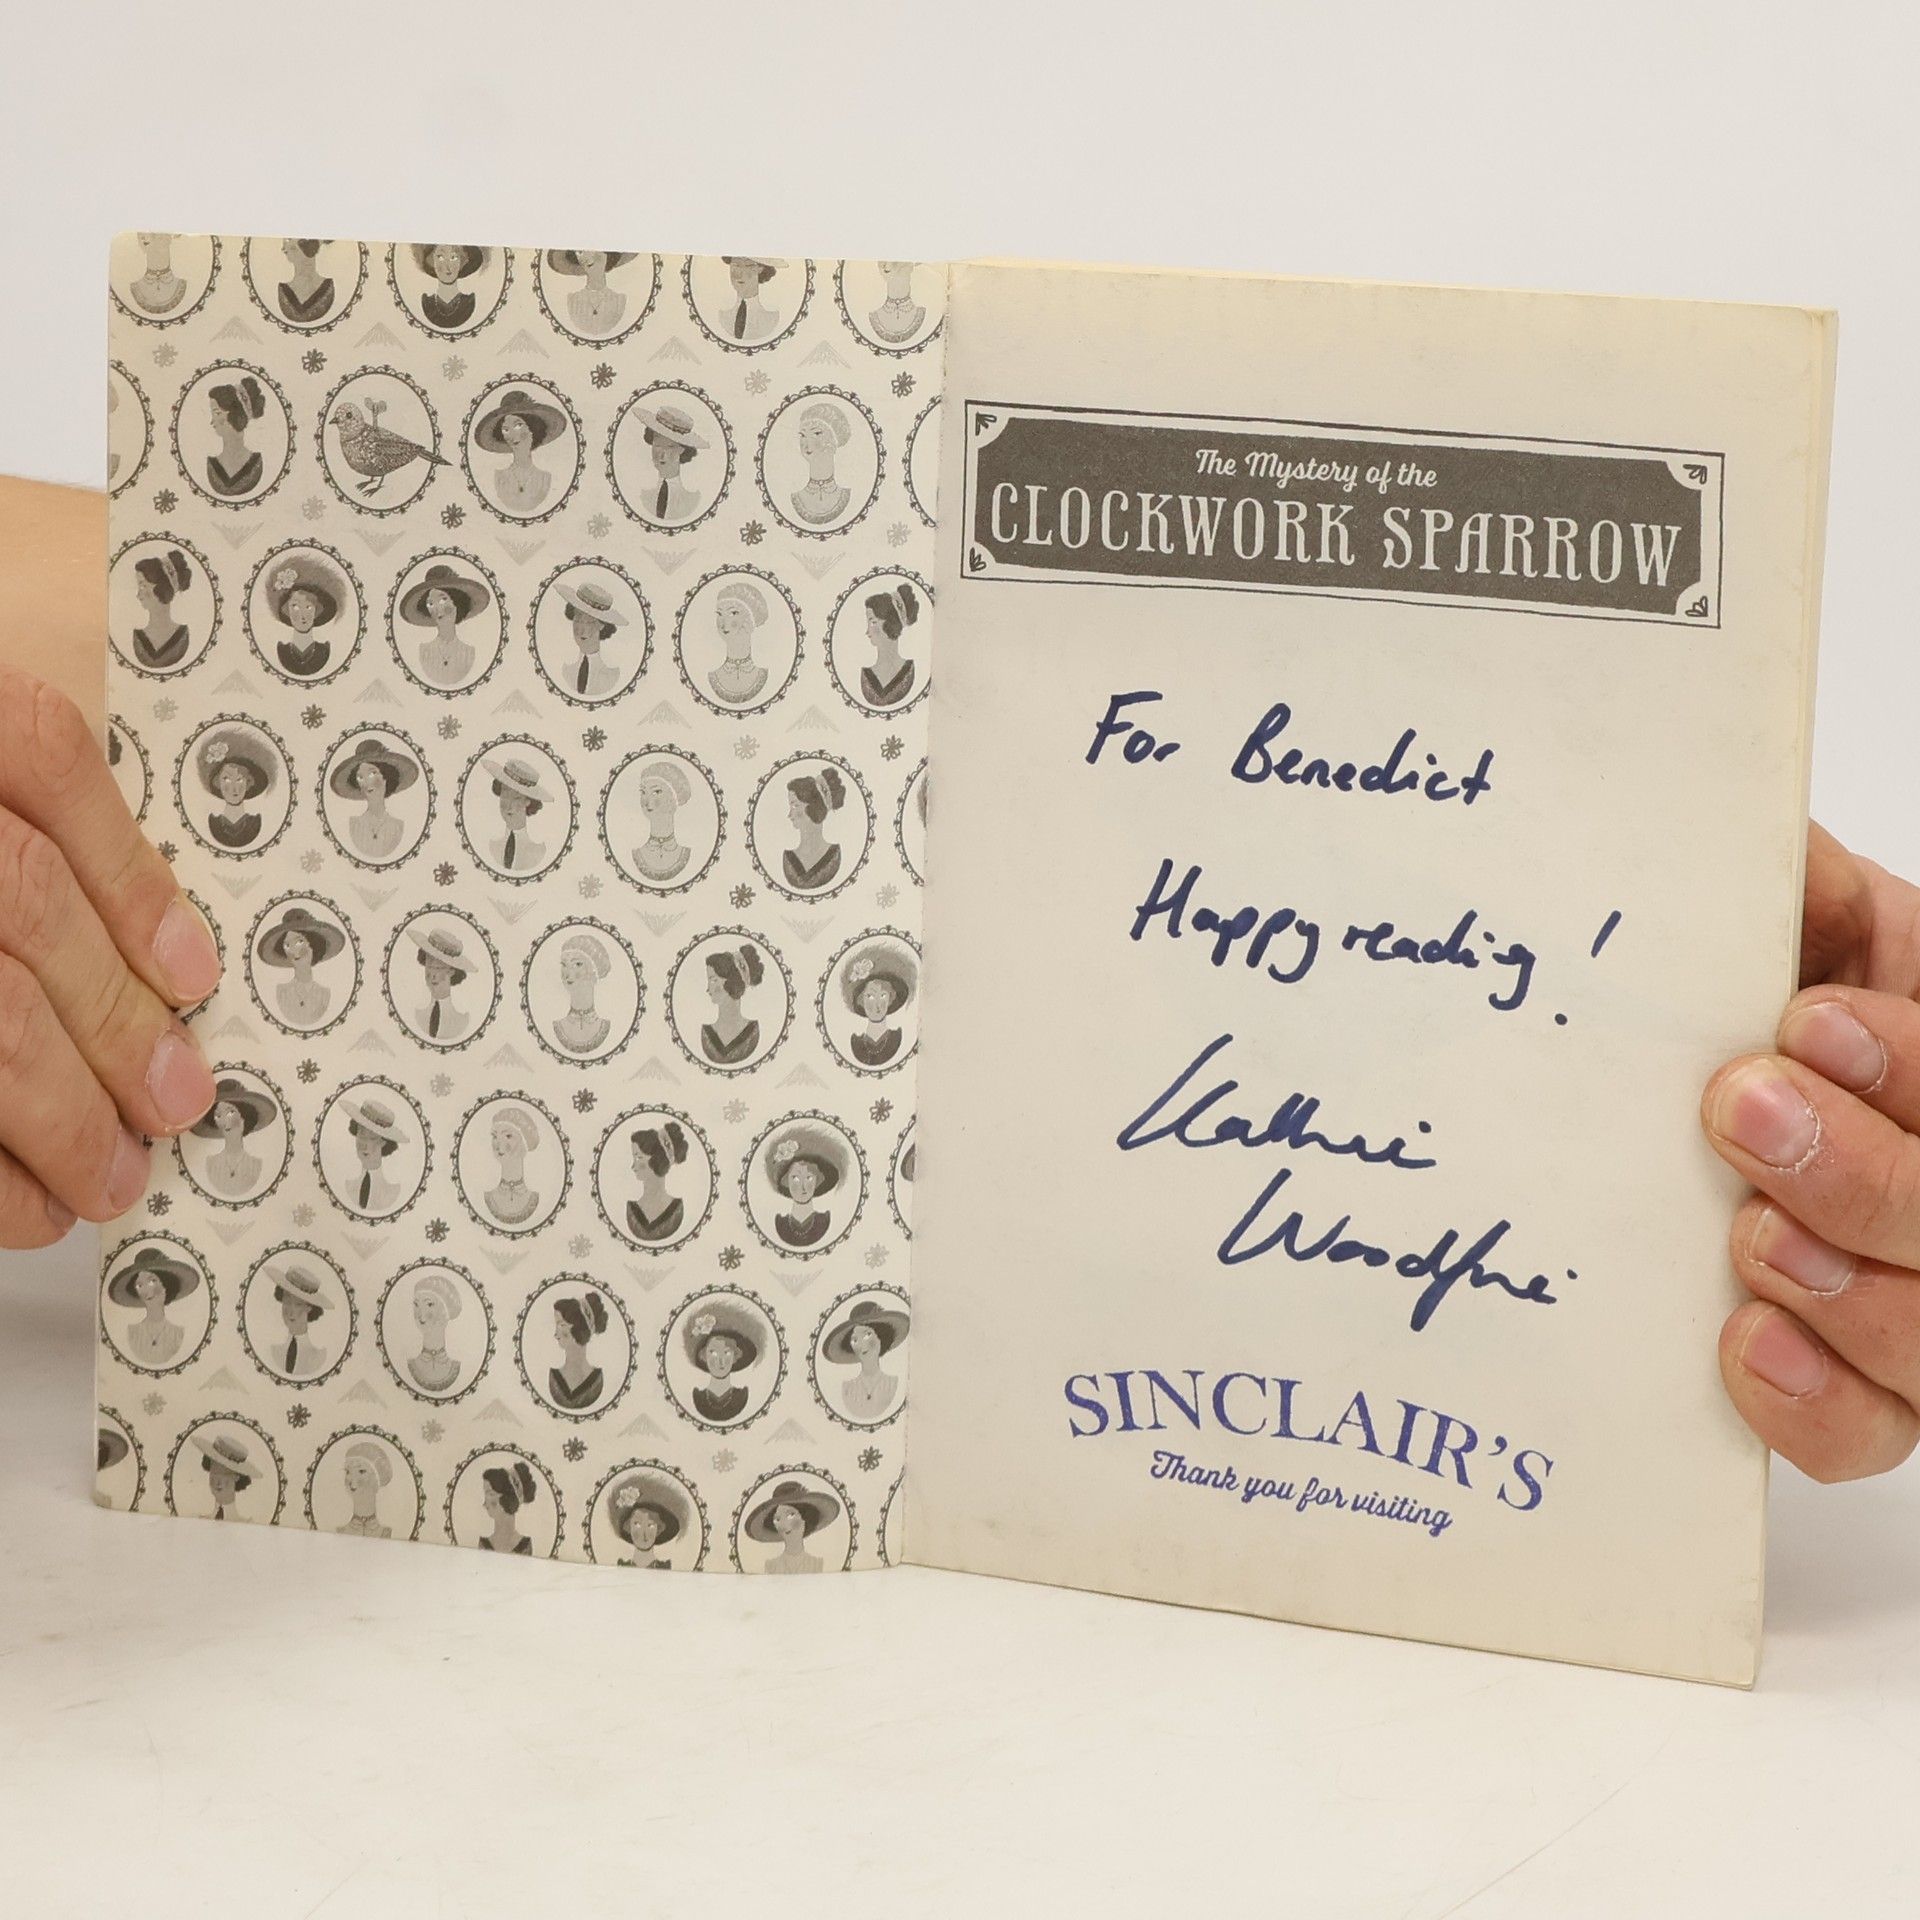 The Mystery of the
CLOCKWORK SPARROW
For Benedict
Happy reading!
Katherine
Woodfine
SINCLAIR'S
Thank you for visiting